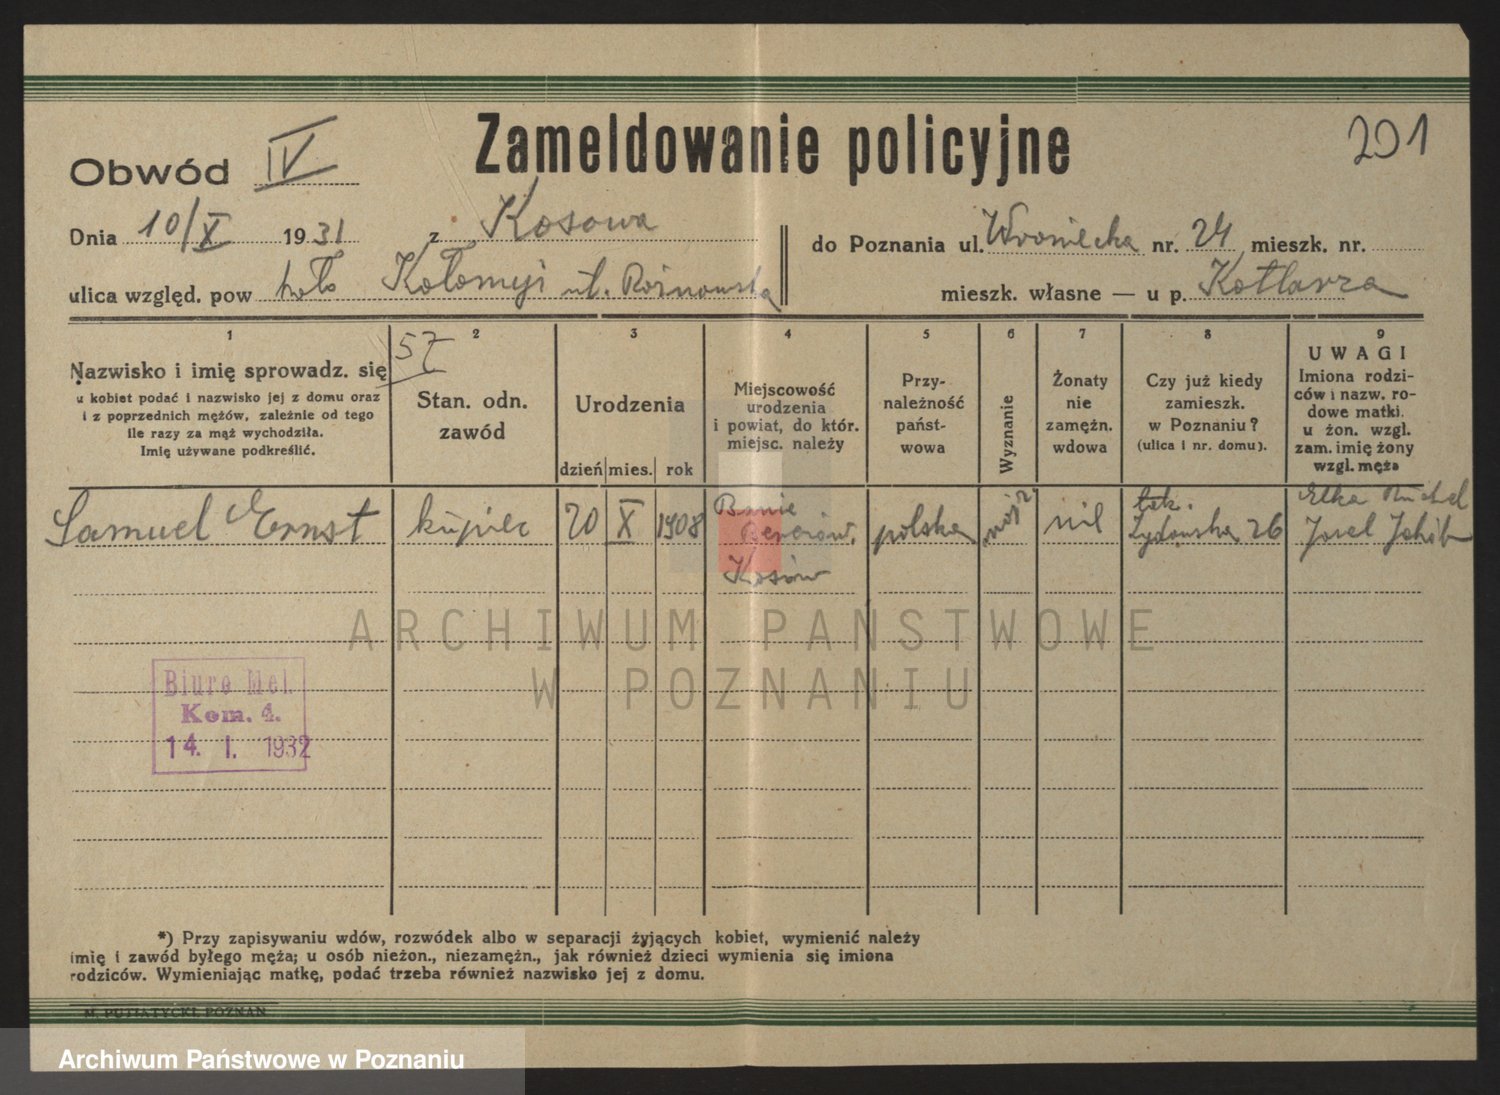 Zameldowanie policyjne
201
Obwód IV
Dnia 10/X 1931 z Kosowa
do Poznania ul. Wroniecka nr. 24 mieszk. nr.
ulica względ. pow koło Kołomyi ul. Rożnowska
mieszk. własne — u p. Kotlarza
1
57
2
3
4
5
6
7
8
9
Nazwisko i imię sprowadz. się
u kobiet podać i nazwisko jej z domu oraz
i z poprzednich mężów, zależnie od tego
ile razy za mąż wychodziła.
Imię używane podkreślić.
Stan. odn.
zawód
Urodzenia
dzień mies. rok
Miejscowość
urodzenia
i powiat, do któr.
miejsc. należy
Przy-
należność
państ-
wowa
Wyznanie
Żonaty
nie
zamężn.
wdowa
Czy już kiedy
zamieszk.
w Poznaniu?
(ulica i nr. domu).
UWAGI
Imiona rodzi-
ców i nazw. ro-
dowe matki.
u żon. wzgl.
zam. imię żony
wzgl. męża
Samuel Ernst
kupiec
20 X 1908
Kosów
polska
nie
tak.
26
Elka Ruchel
Josel Jakób
ARCHIWUM PAŃSTWOWE
W POZNANIU
Biuro Mel.
Kom. 4.
14. I. 1932
*) Przy zapisywaniu wdów, rozwódek albo w separacji żyjących kobiet, wymienić należy
imię i zawód byłego męża; u osób nieżon., niezamężn., jak również dzieci wymienia się imiona
rodziców. Wymieniając matkę, podać trzeba również nazwisko jej z domu.
M. PUTIATYCKI, POZNAŃ
Archiwum Państwowe w Poznaniu